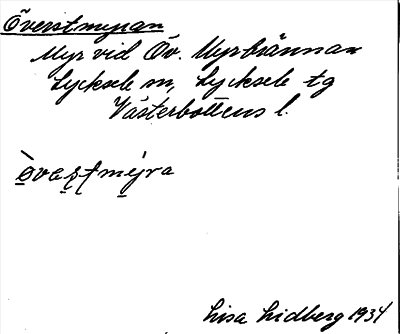 Överstmyran
Myr vid Öv. Myrbrännan
Lycksele sn, Lycksele tg
Västerbottens l.
Lisa Lidberg 1934